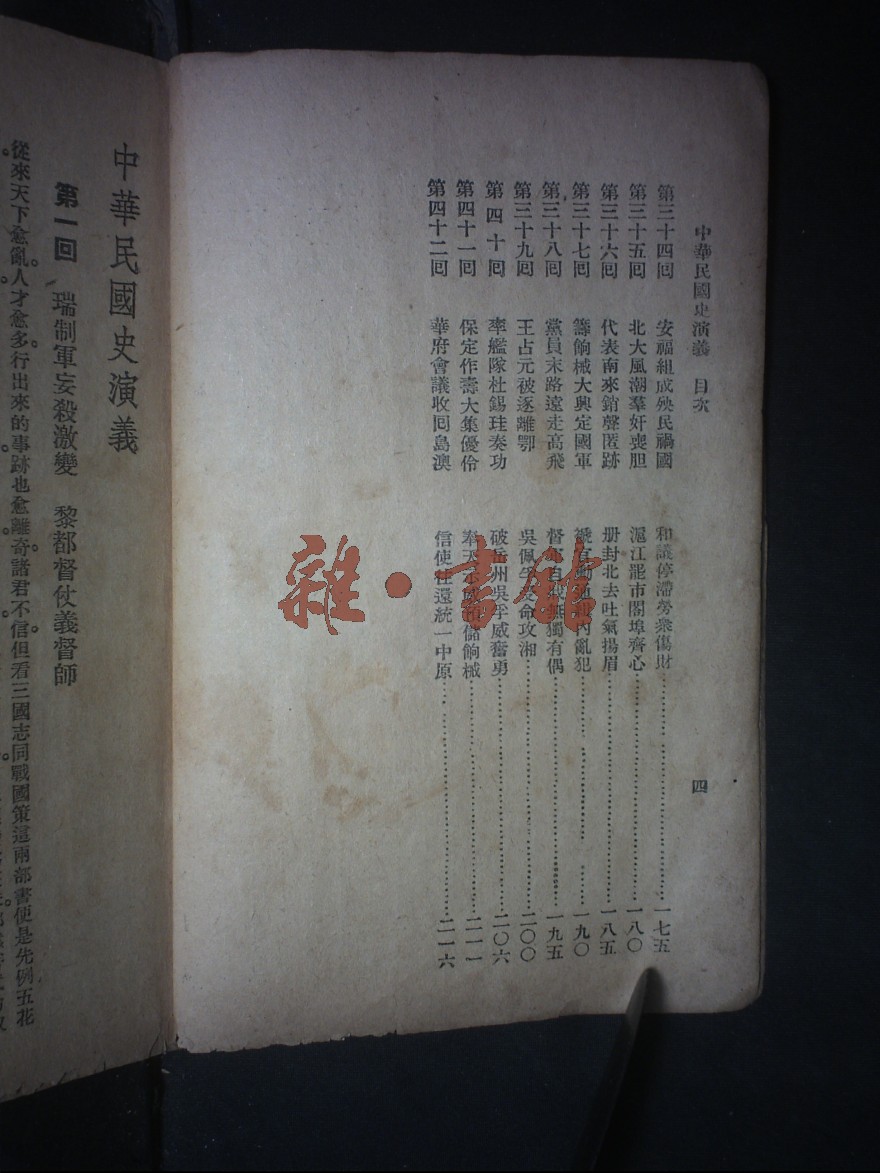 中華民國史演義 目次 四
第三十四囘 安福組成殃民禍國 和議停滯勞衆傷財 一七五
第三十五囘 北大風潮羣奸喪胆 滬江罷市闔埠齊心 一八〇
第三十六囘 代表南來銷聲匿跡 册封北去吐氣揚眉 一八五
第三十七囘 籌餉械大興定國軍 內亂犯 一九〇
第三十八囘 黨員末路遠走高飛 督 自 無獨有偶 一九五
第三十九囘 王占元被逐離鄂 吳佩孚 命攻湘 二〇〇
第四十囘 率艦隊杜錫珪奏功 破岳州吳孚威奮勇 二〇六
第四十一囘 保定作壽大集優伶 奉天 儲餉械 二一一
第四十二囘 華府會議收囘島澳 信使往還統一中原 二一六
中華民國史演義
第一回 瑞制軍妄殺激變 黎都督仗義督師
從來天下愈亂。人才愈多。行出來的事跡。也愈離奇。諸君不信。但看三國志同戰國策。這兩部書。便是先例。五花
雜·書館